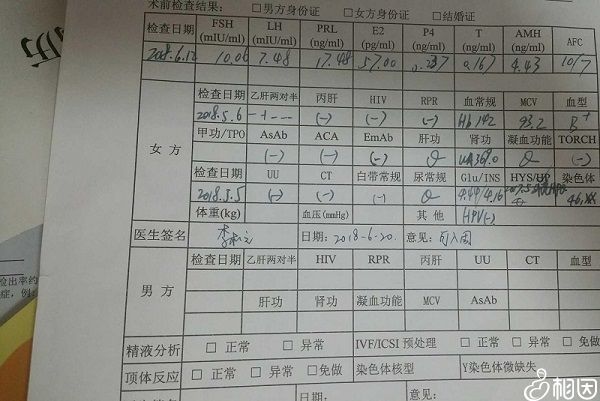 术前检查结果： □男方身份证 □女方身份证 □结婚证
检查日期 FSH (mIU/ml) LH (mIU/ml) PRL (ng/ml) E2 (pg/ml) P4 (ng/ml) T (ng/ml) AMH (ng/ml) AFC
10.06 7.48 17.48 57.00 0.167 4.43 10/7
女方
检查日期 乙肝两对半 丙肝 HIV RPR 血常规 MCV 血型
2018.5.6 -+--- (-) (-) (-) Hb 142 93.2 B+
甲功/TPO AsAb ACA EmAb 肝功 肾功 凝血功能 TORCH
(-) (-) (-) (-)
检查日期 UU CT 白带常规 尿常规 Glu/INS HYS/HP 染色体
2018.5.5 (-) (-) (-) 46,XX
体重(kg) 血压(mmHg) 其他 HPV(-)
医生签名 日期：2018-6-20. 意见：可入周
男方
检查日期 乙肝两对半 HIV RPR 丙肝 UU CT 血型
肝功 肾功 凝血功能 MCV AsAb
精液分析 □ 正常 □ 异常 IVF/ICSI 预处理 □ 正常 □ 异常 □ 免做
顶体反应 □ 正常 □ 异常 □免做 染色体核型 Y染色体微缺失
日期： 意见：
检出率约
症，例：
相因